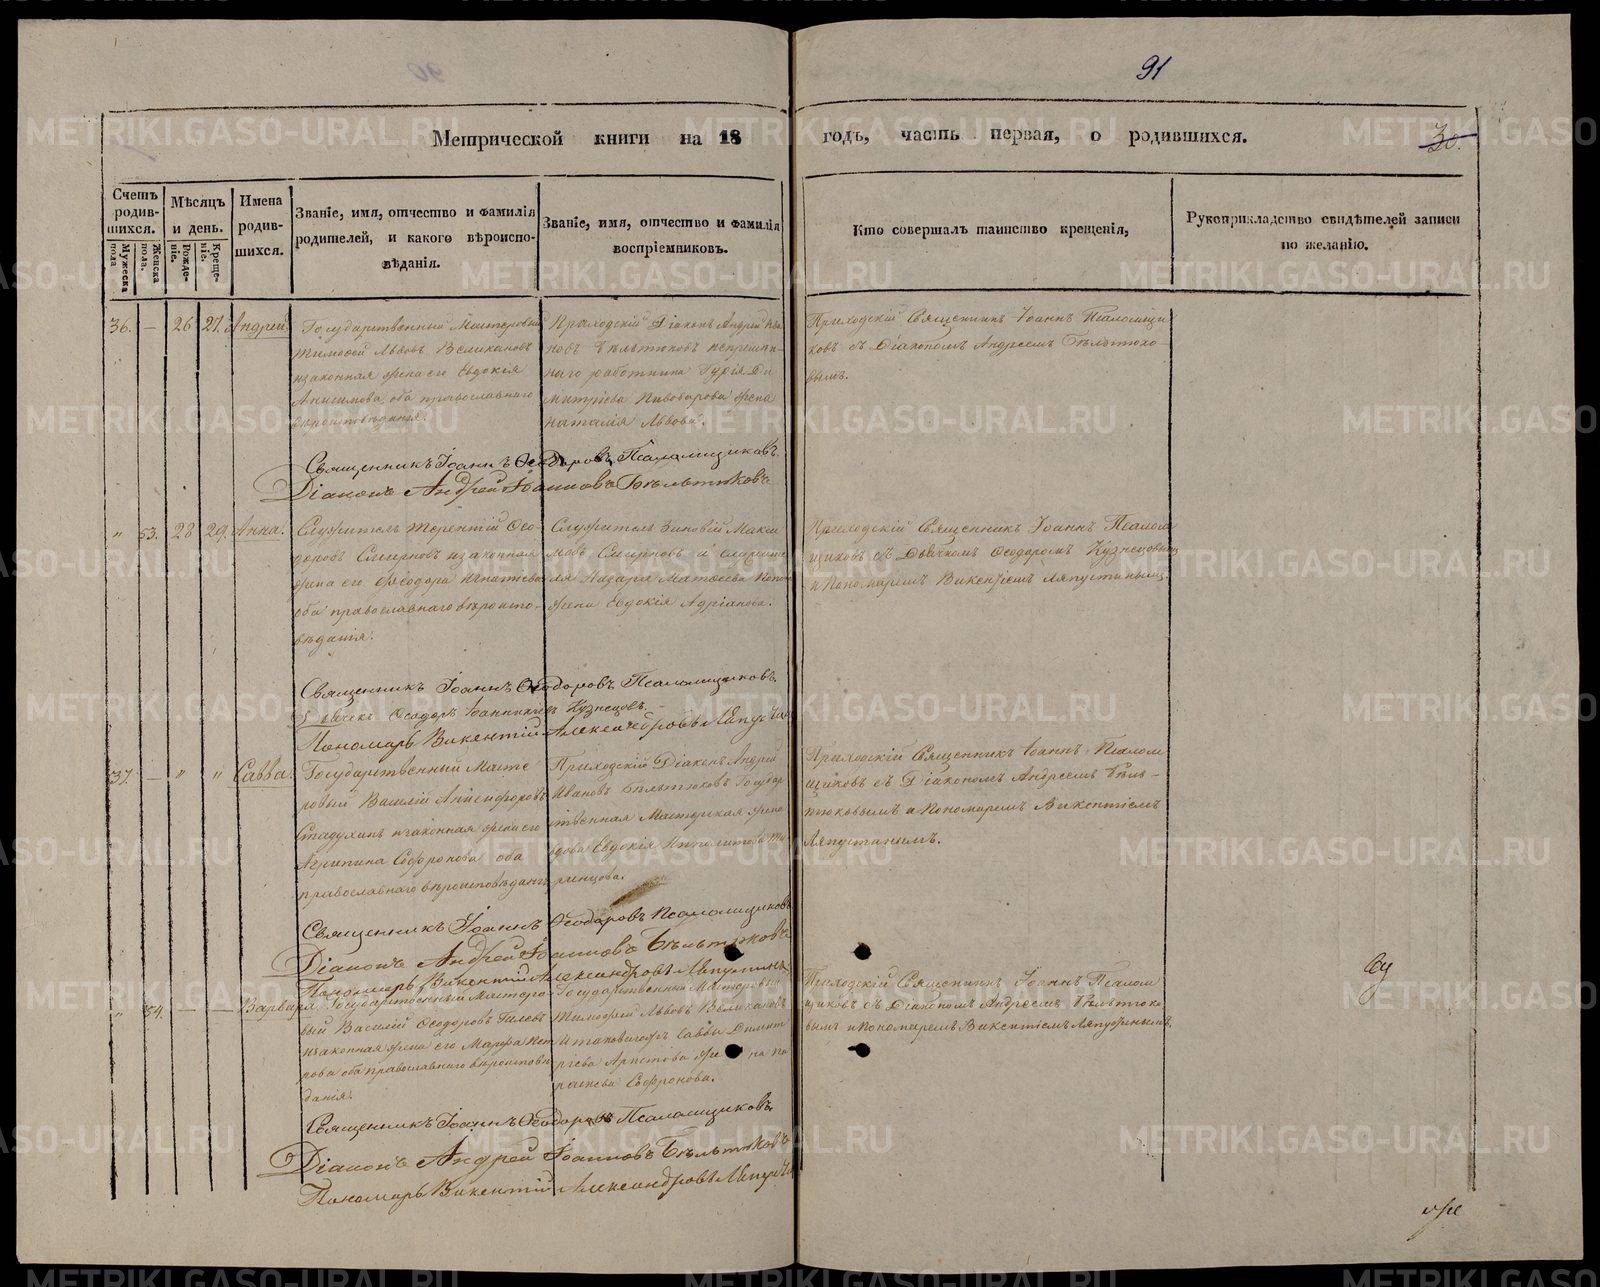 91
30.
Метрической книги на 18
годъ, часть первая, о родившихся.
Счетъ родив-
шихся.
Мужеска пола
Женска пола.
Мѣсяцъ
и день.
Рожде-
ніе.
Креще-
ніе.
Имена
родив-
шихся.
Званіе, имя, отчество и фамилія
родителей, и какого вѣроиспо-
вѣданія.
Званіе, имя, отчество и фамилія
воспріемниковъ.
Кто совершалъ таинство крещенія,
Рукоприкладство свидѣтелей записи
по желанію.
36. — 26 27. Андрей
Государственный Мастеровый
Тимофей Львовъ Великановъ
и законная жена его Евдокія
Анисимова, оба православнаго
вѣроисповѣданія.
Приходскій Діаконъ Андрей Ива-
новъ Бѣльтюковъ
наго работника Гурія Ди
митріева Пивоварова жена
Наталія Львова.
Приходскій Священникъ Іоаннъ Псаломщи
ковъ съ Діакономъ Андреемъ Бѣльтюко-
вымъ.
Священникъ Іоаннъ Ѳеодоровъ Псаломщиковъ.
Діаконъ Андрей Іоанновъ Бѣльтюковъ
" 53. 28 29. Анна.
Служитель Терентій Ѳео-
доровъ Смирновъ и законная
жена его Ѳеодора Игнатіева
оба православнаго вѣроиспо-
вѣданія.
Служитель Зиновій Макси
мовъ Смирновъ и служите
ля Лазаря Матвеева
жена Евдокія Адріанова.
Приходскій Священникъ Іоаннъ Псалом
щиковъ съ Дьячкомъ Ѳеодоромъ Кузнецовымъ
и Пономаремъ Викентіемъ Ляпустинымъ.
Священникъ Іоаннъ Ѳеодоровъ Псаломщиковъ.
Дьячекъ Ѳеодоръ Іоанникіевъ Кузнецовъ.
Пономарь Викентій Александровъ Ляпустин
37. — " " Савва.
Государственный Масте
ровый Василій Анкенфоровъ
Стадухинъ и законная жена его
Агрипина Софронова оба
православнаго вѣроисповѣданія
Приходскій Діаконъ Андрей
Ивановъ Бѣльтюковъ Государ
ственная Мастерская жена
вдова Евдокія Ипполитова
Приходскій Священникъ Іоаннъ Псалом
щиковъ съ Діакономъ Андреемъ Бѣль-
тюковымъ и Пономаремъ Викентіемъ
Ляпустинымъ.
Священникъ Іоаннъ Ѳеодоровъ Псаломщиковъ
Діаконъ Андрей Іоанновъ Бѣльтюковъ
Пономарь Викентий Александровъ Ляпустинъ
" 54. — — Варвара
Государственный Мастеро
вый Василій Ѳеодоровъ Гилевъ
и законная жена его Марфа Пет
рова оба православнаго вѣроисповѣ
данія.
Государственный Мастеровый
Тимофей Львовъ Великановъ
и таковагожъ Саввы Димит
ріева Аристова жена Па
расковья Софронова.
Приходскій Священникъ Іоаннъ Псалом
щиковъ съ Діакономъ Андреемъ Бѣльтюко
вымъ и Пономаремъ Викентіемъ Ляпустинымъ.
Священникъ Іоаннъ Ѳеодоровъ Псаломщиковъ
Діаконъ Андрей Іоанновъ Бѣльтюковъ
Пономарь Викентий Александровъ Ляпустин
METRIKI.GASO-URAL.RU